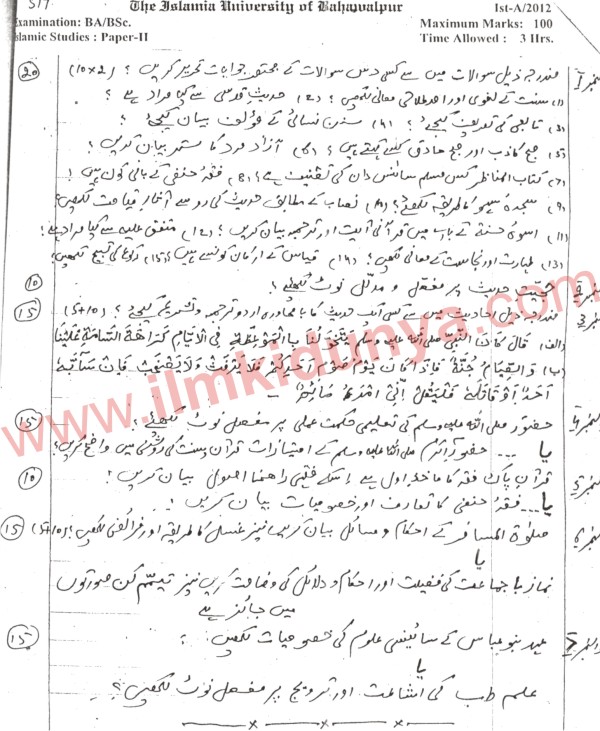 The Islamia University of Bahawalpur
517
Ist-A/2012
Examination: BA/BSc.
Maximum Marks: 100
Islamic Studies : Paper-II
Time Allowed : 3 Hrs.
مندرجہ ذیل سوالات میں سے کسی دس سوالات کے مختصر جوابات تحریر کریں ؟ (10x2) 20
(1) سنت کے لغوی اور اصطلاحی معانی لکھیں ؟ (2) حدیث قدسی سے کیا مراد ہے ؟
(3) تابعی کی تعریف کیجئے ؟ (4) سنن نسائی کے مؤلف بیان کیجئے ؟
(5) حج کاذب اور صادق کسے کہتے ہیں ؟ (6) آزاد مرد کا ستر بیان کریں ؟
(7) کتاب المناظر کس مسلم سائنس دان کی تصنیف ہے ؟ (8) فقہ حنفی کے بانی کون ہیں ؟
(9) سجدہ سہو کا طریقہ لکھئے ؟ (10) نصاب کے مطابق حدیث کی رو سے آثار قیامت لکھیں ؟
(11) اسوۂ حسنہ کے بارے میں قرآنی آیت اور ترجمہ بیان کریں ؟ (12) متفق علیہ سے کیا مراد ہے ؟
(13) طہارت اور نجاست کے معانی لکھیں ؟ (14) قیاس کے ارکان کونسے ہیں ؟ (15) رکوع کی تسبیح لکھیں
حجیت حدیث پر مفصل و مدلل نوٹ لکھئے ؟ 10
مندرجہ ذیل احادیث میں سے کسی ایک حدیث کا بامحاورہ اردو ترجمہ و تشریح کیجئے ؟ (5+10) 15
(الف) قال کان النبی صلی اللہ علیہ وسلم یتخولنا بالموعظة فی الایام کراھة السامة علینا
(ب) والصیام جنة فاذا کان یوم صوم احدکم فلا یرفث ولا یصخب فان سابه
احد او قاتله فلیقل انی امرء صائم
حضور صلی اللہ علیہ وسلم کی تعلیمی حکمت عملی پر مفصل نوٹ لکھئے ؟ 15
یا ... حضور اکرم صلی اللہ علیہ وسلم کے امتیازات قرآن و سنت کی روشنی میں واضح کریں ؟
قرآن پاک فقہ کا ماخذ اول ہے اسکے فقہی راھنما اصول بیان کریں ؟ 10
یا ... فقہ حنفی کا تعارف اور خصوصیات بیان کریں ؟
صلوٰة المسافر کے احکام و مسائل بیان کریں نیز غسل کا طریقہ اور فرائض لکھیں ؟ (5+10) 15
یا
نماز باجماعت کی فضیلت اور احکام و دلائل کی وضاحت کریں نیز تیمم کن صورتوں
میں جائز ہے
عہد بنو عباس کے سائنسی علوم کی خصوصیات لکھیں ؟ 15
یا
علم طب کی اشاعت اور ترویج پر مفصل نوٹ لکھیں ؟
www.ilmkidunya.com